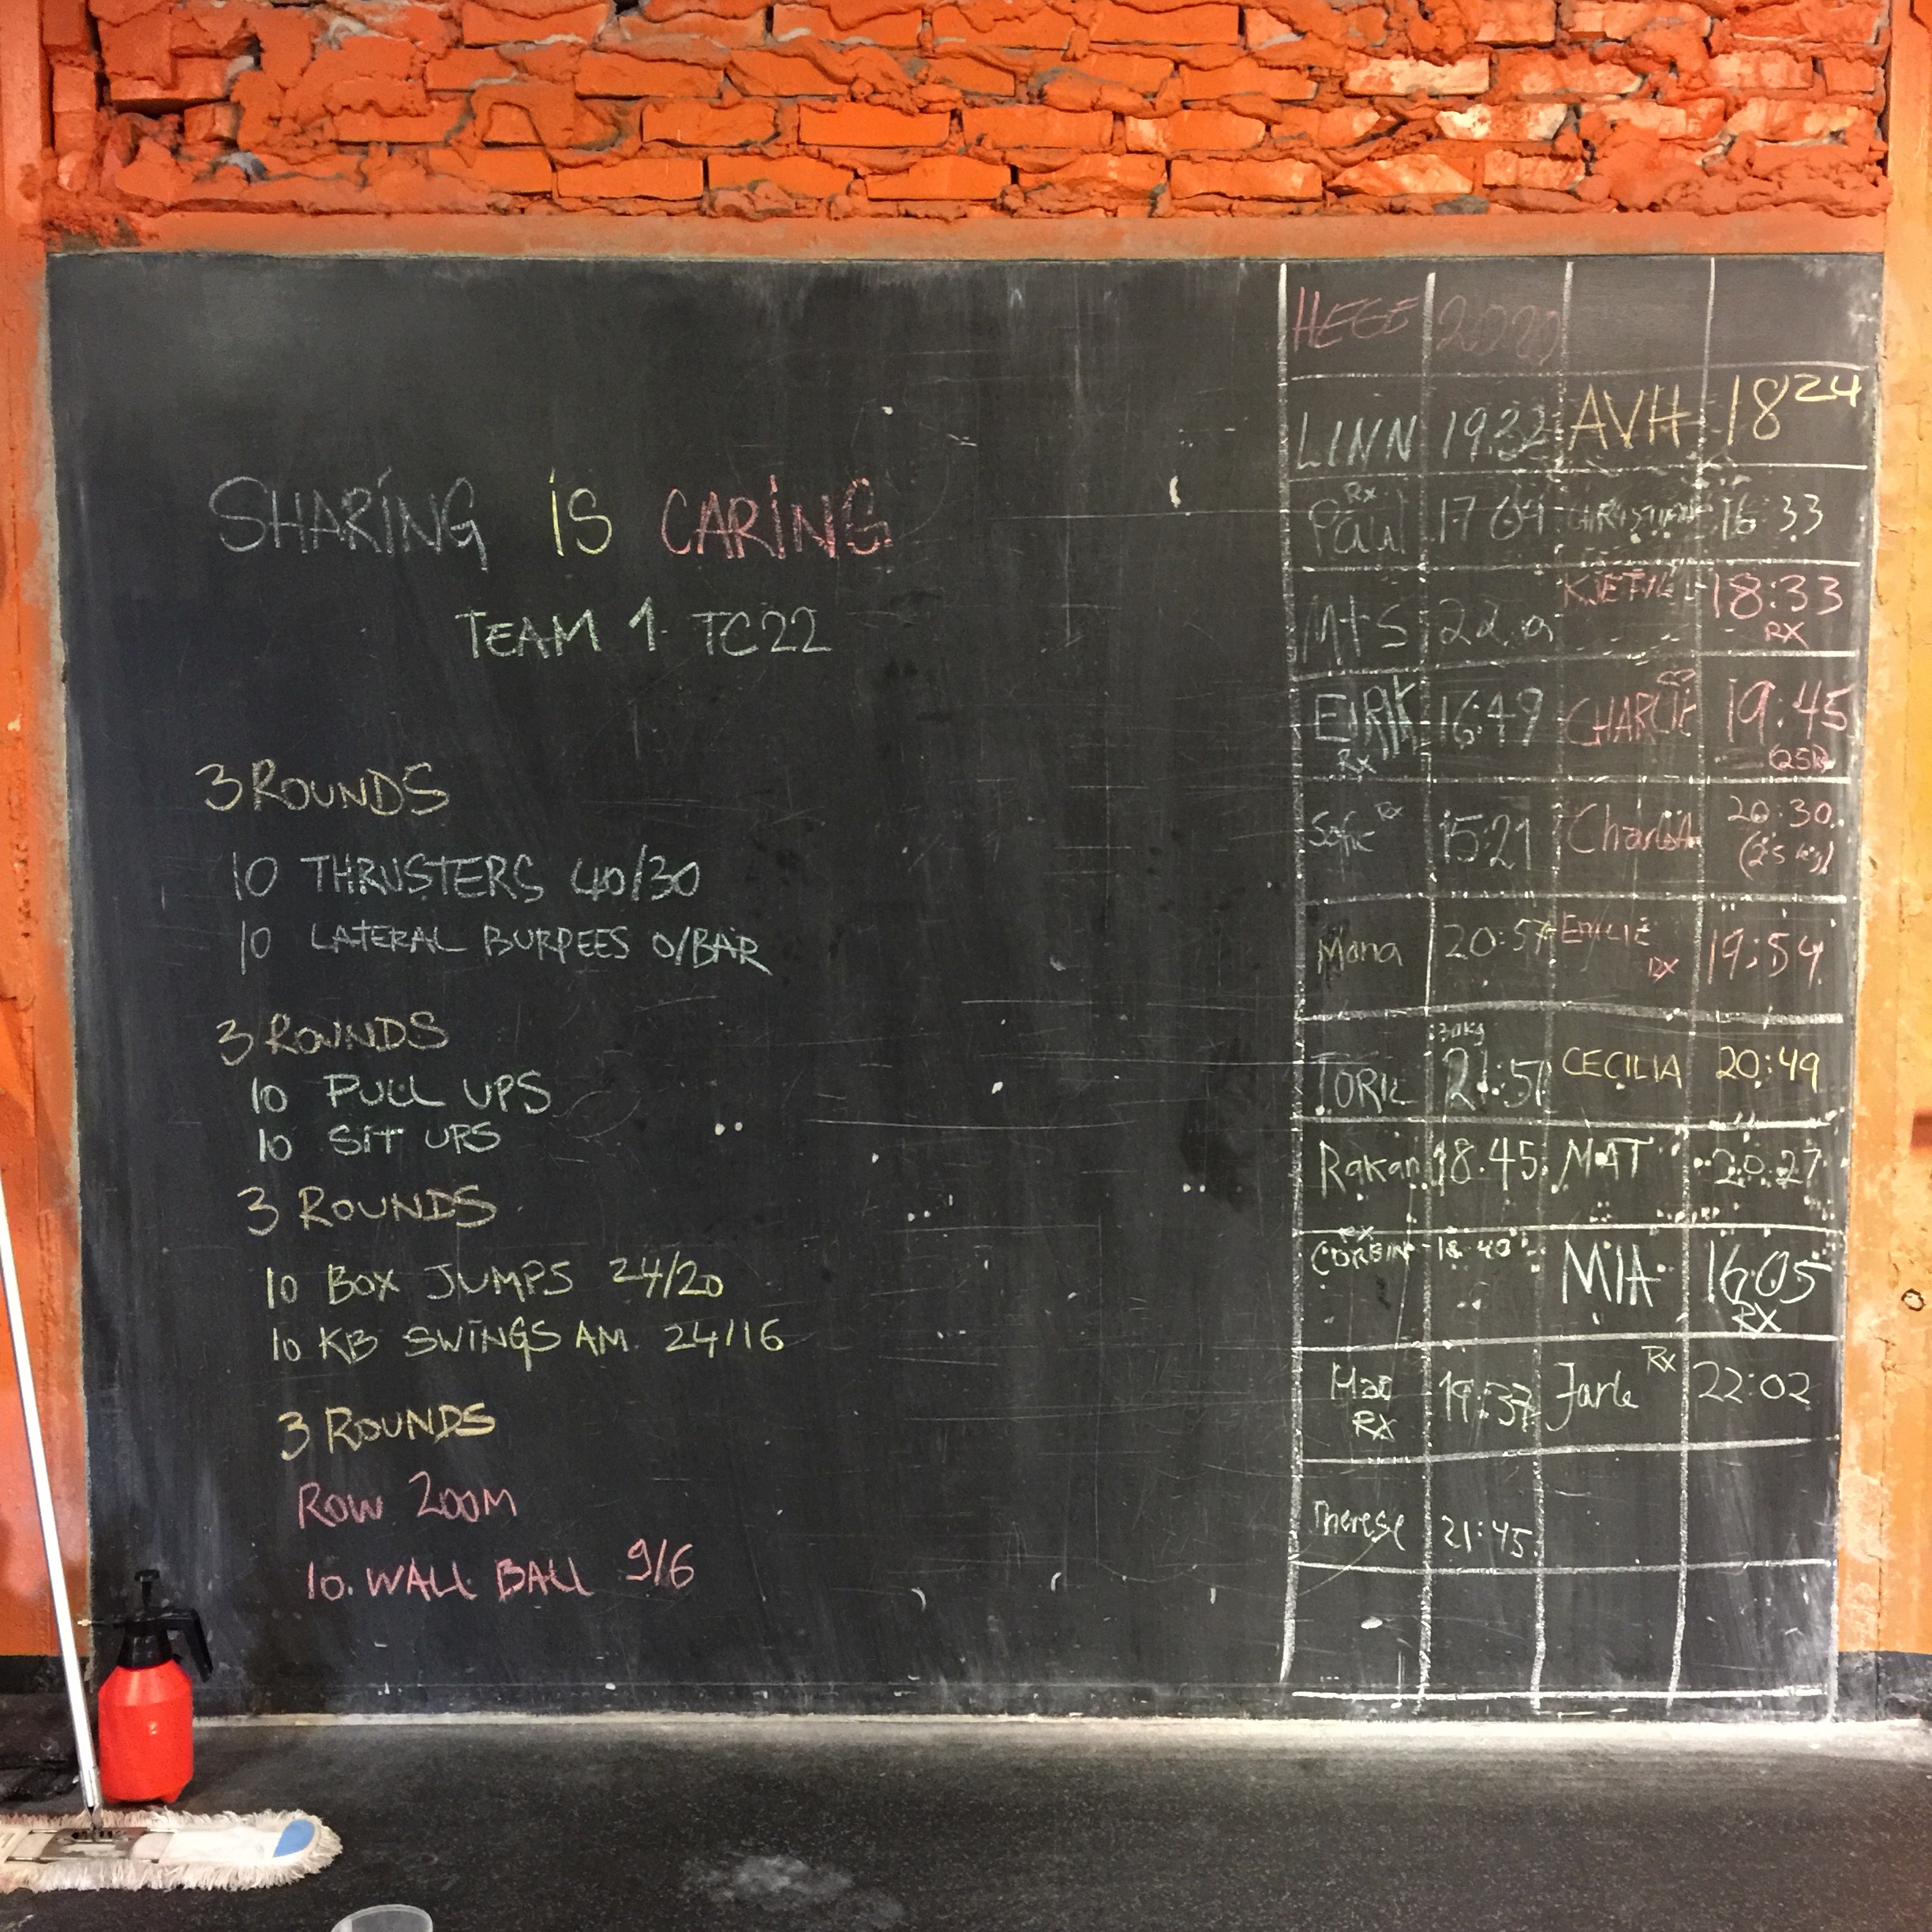 SHARING IS CARING
TEAM 1 TC22
3 ROUNDS
10 THRUSTERS 40/30
10 LATERAL BURPEES O/BAR
3 ROUNDS
10 PULL UPS
10 SIT UPS
3 ROUNDS
10 BOX JUMPS 24/20
10 KB SWINGS AM 24/16
3 ROUNDS
ROW 200M
10. WALL BALL 9/6
HEGE 2020
LINN 19.32 AVH 18 24
Paul Rx 16:33
KJETIL 18:33 RX
EIRIK RX 16:49 CHARLIE 19:45
Sofie Rx 15:21 20:30 (25 kg)
Mona 20:57 EMILIE RX 19:54
TORIL 30KG 21:57 CECILIA 20:49
Rakan 18.45 MAT 20:27
CORBIN RX 18:40 MIA 16:05 RX
RX 19:37 Jarle Rx 22:02
Therese 21:45